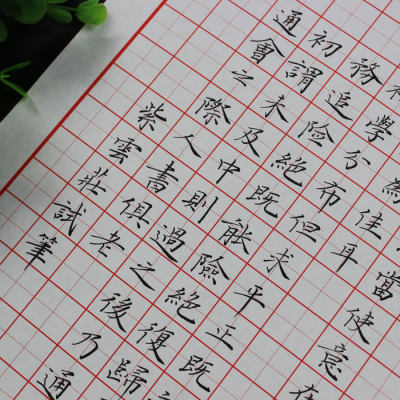 當使意在
為佳耳
學分布但未平正既
務追險絕既能險絕復歸
初謂未及中則過之後乃通
通會之際人書俱老
紫雲莊試筆